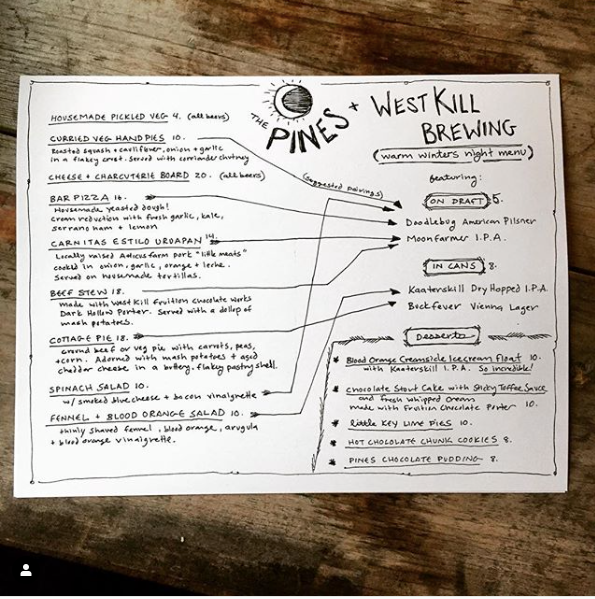 THE PINES + WEST KILL
BREWING
(warm winters night menu)
featuring:
HOUSEMADE PICKLED VEG 4. (all beers)
CURRIED VEG HANDPIES 10.
Roasted squash + cauliflower, onion + garlic
in a flakey crust. Served with corriander chutney
CHEESE + CHARCUTERIE BOARD 20. (all beers)
BAR PIZZA 16.
Housemade yeasted dough!
Cream reduction with fresh garlic, kale,
serrano ham + lemon
CARNITAS ESTILO UROAPAN 14.
Locally raised Atticus farm pork "little meats"
cooked in onion, garlic, orange + leche.
Served on housemade tortillas.
BEEF STEW 18.
made with West Kill Fruition Chocolate Works
Dark Hollow Porter. Served with a dollop of
mash potatoes.
COTTAGE PIE 18.
ground beef or veg pie with carrots, peas,
+ corn. Adorned with mash potatoes + aged
cheddar cheese in a buttery, flakey pastry shell.
SPINACH SALAD 10.
w/ smoked blue cheese + bacon vinaigrette
FENNEL + BLOOD ORANGE SALAD 10.
thinly shaved fennel, blood orange, arugula
+ blood orange vinaigrette.
(suggested pairings)
ON DRAFT 5.
Doodlebug American Pilsner
Moonfarmer I.P.A.
IN CANS 8.
Kaaterskill Dry Hopped I.P.A
Buckfever Vienna Lager
Desserts
* Blood Orange Creamsicle Icecream Float 10.
with Kaaterskill I.P.A. So incredible!
* Chocolate Stout Cake with Sticky Toffee Sauce
and fresh whipped cream
made with Fruition Chocolate Porter 10.
* Little Key Lime Pies 10.
* HOT CHOLOLATE CHUNK COOKIES 8.
* PINES CHOCOLATE PUDDING 8.